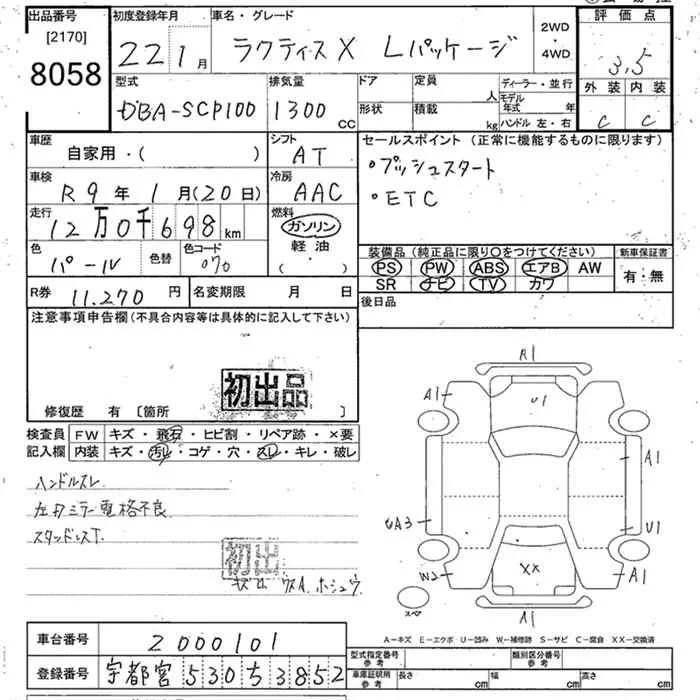 出品番号
[2170]
8058
初度登録年月
22 1月
車名・グレード
ラクティス X Lパッケージ
2WD
・
4WD
評価点
3.5
外装 内装
C C
型式
DBA-SCP100
排気量
1300 CC
ドア
形状
定員 人
積載 kg
ディーラー・並行
モデル年式 年
ハンドル 左・右
車歴
自家用・( )
シフト
AT
セールスポイント (正常に機能するものに限ります)
・プッシュスタート
・ETC
車検
R 9年 1月(20日)
冷房
AAC
走行
12万0千698km
燃料
ガソリン
軽油
( ・ )
色
パール
色替
色コード
070
装備品 (純正品に限り○をつけてください)
PS PW ABS エアB AW
SR ナビ TV カワ
新車保証書
有・無
R券 11,270円
名変期限 月 日
後日品
注意事項申告欄(不具合内容等は具体的に記入して下さい)
初出品
修復歴 有 [箇所 ]
検査員
記入欄
FW キズ・飛石・ヒビ割・リペア跡・×要
内装 キズ・汚れ・コゲ・穴・スレ・キレ・破レ
ハンドルスレ
左ドミラー電格不良
スタッドレスT.
初出
キズA.ホシュウ
R1
A1
U1
A1
UA3
U1
W2
XX
A1
スペア
A1
A-キズ E-エクボ U-凹み W-補修跡 S-サビ C-腐食 XX-交換済
車台番号
2000101
登録番号
宇都宮530ち3852
型式指定番号
参考
類別区分番号
参考
車庫証明用
参考
長さ cm
幅 cm
高さ cm